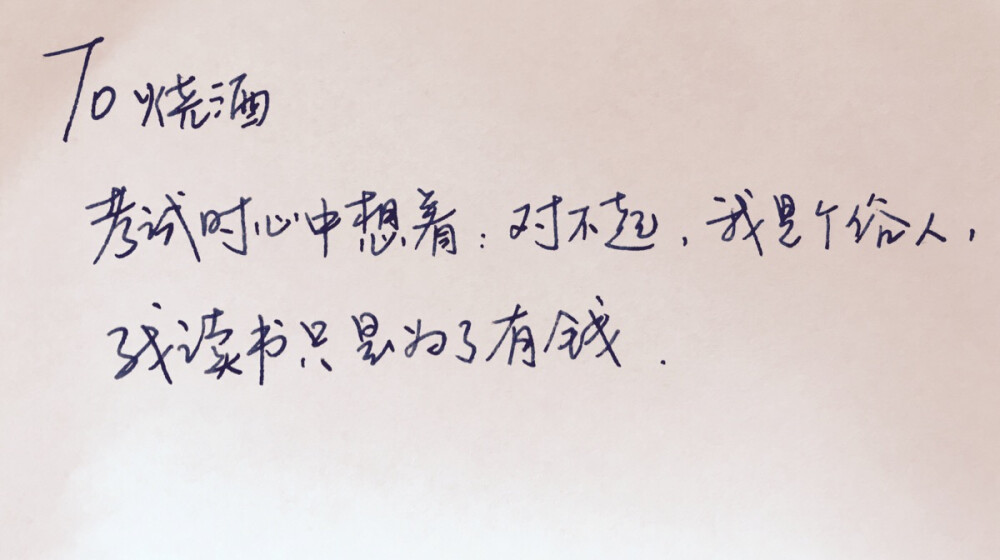 To 烧酒
考试时心中想着：对不起，我是个给人，
我读书只是为了有钱.